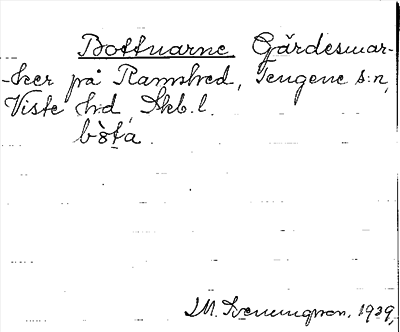 Bottnarne. Gärdesmar-
-ker på Ramshed, Tengene s:n,
Viste hd, Skb. l.
bòta.
1939,